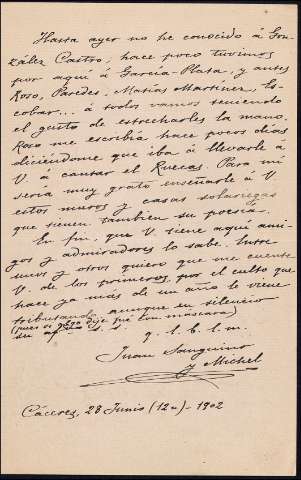 Hasta ayer no he conocido á Gon-
zález Castro, hace poco tuvimos
por aquí á García-Plata, y antes
Roso, Paredes, Matías Martínez, Es-
cobar... á todos vamos teniendo
el gusto de estrecharles la mano.
Roso me escribía hace pocos días
diciéndome que iba á llevarle á
V. á cantar el Ruecas. Para mí
sería muy grato enseñarle á V.
estos muros y casas solariegas
que tienen también su poesía.
En fin, que V. tiene aquí ami-
gos y admiradores lo sabe. Entre
unos y otros quiero que me cuente
V. de los primeros, por el culto que
hace ya mas de un año le viene
tributando, aunque en silencio
(pues si algo dije fué con máscara)
su afmo s. s.
q. l. b. l. m.
Juan Sanguino
y Michel
Cáceres, 28 Junio (12n) - 1902